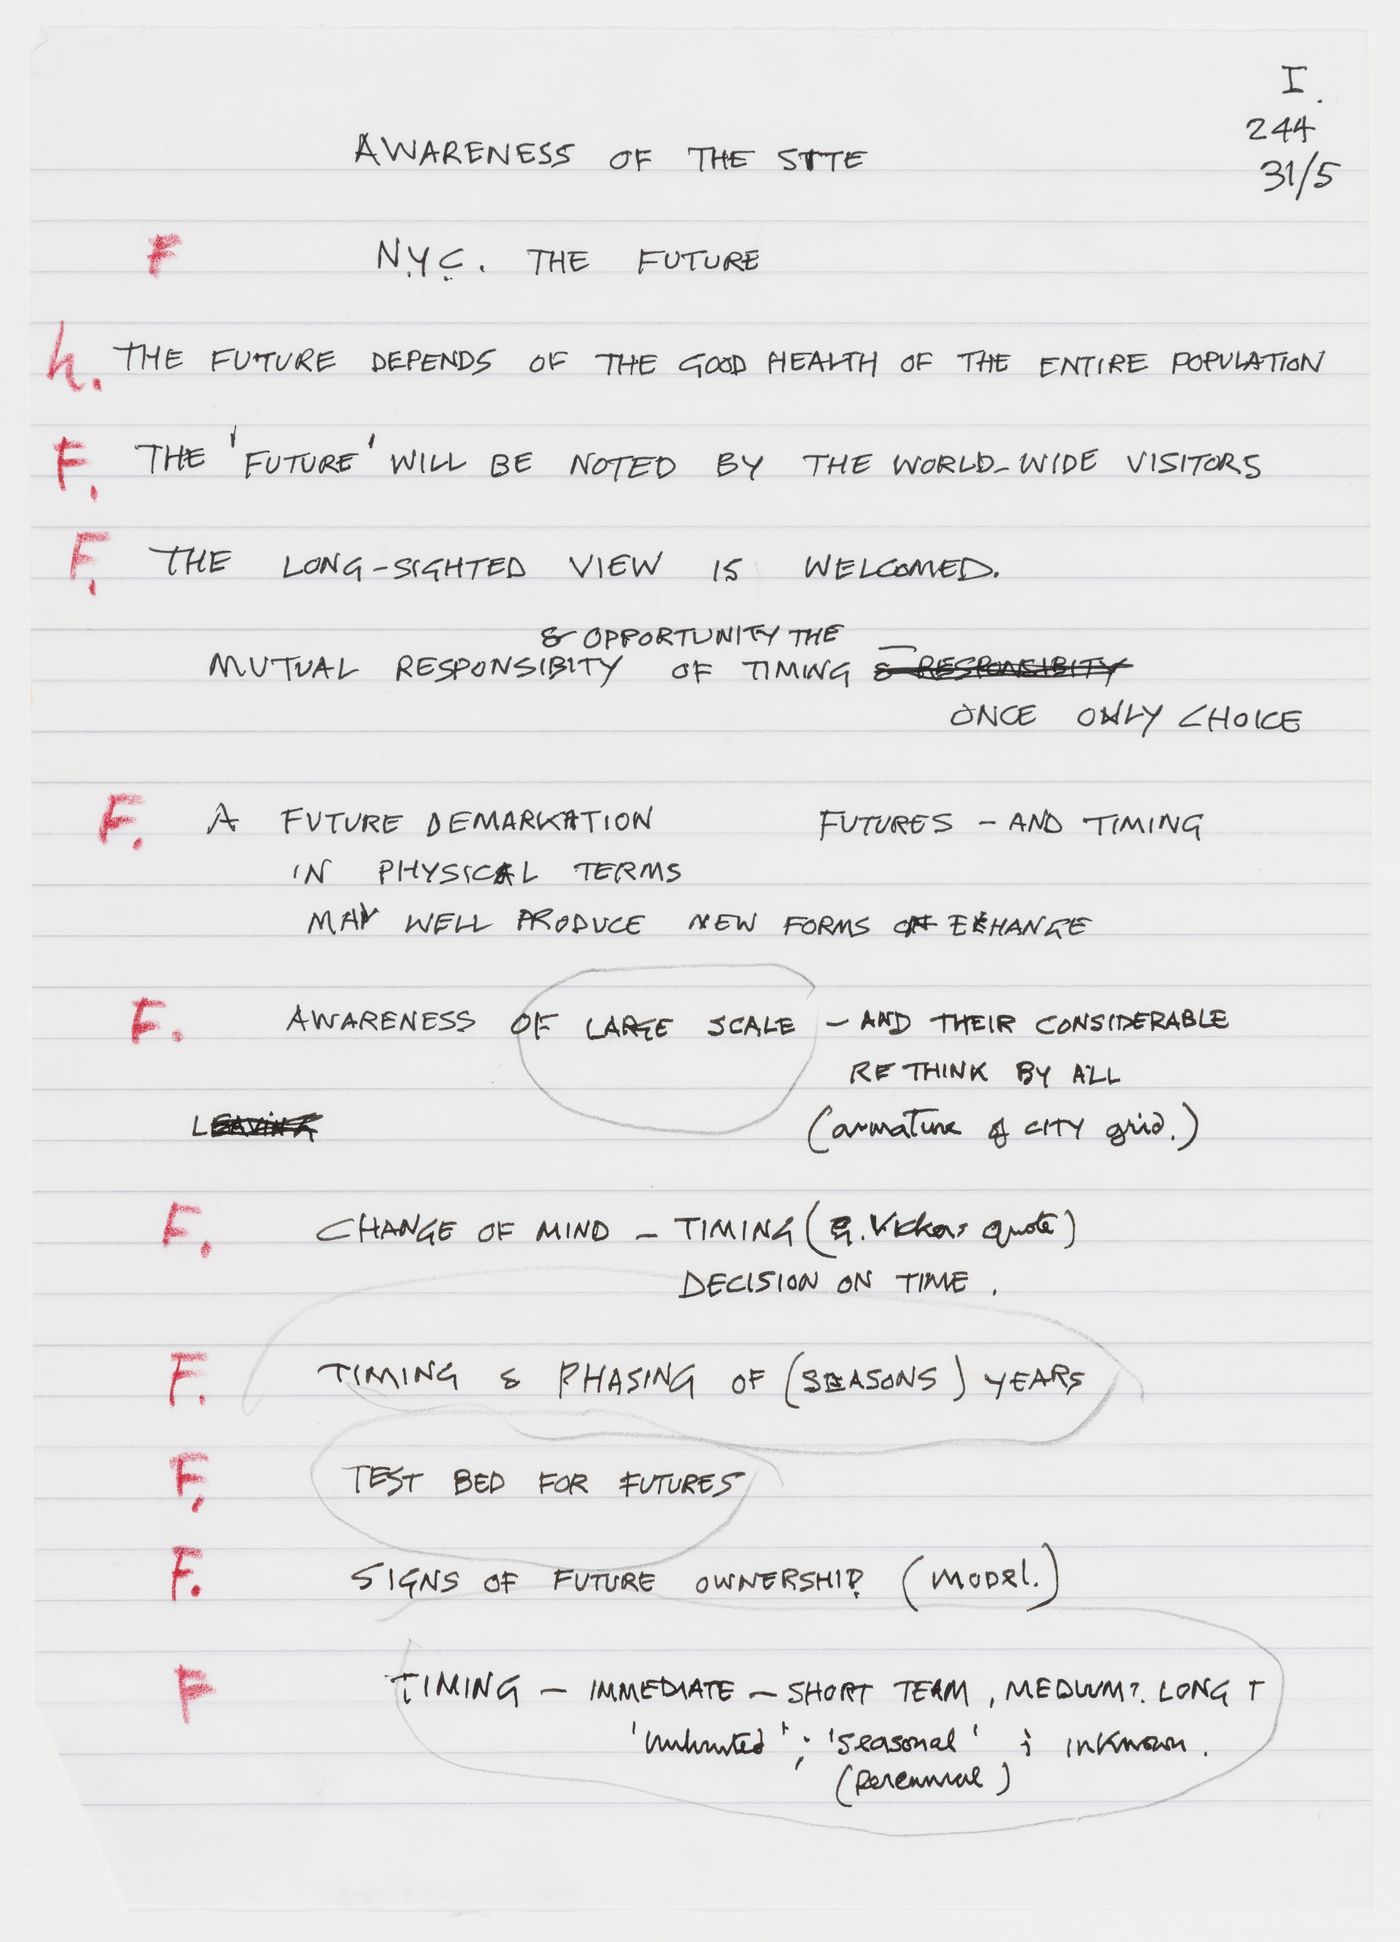 I.
244
31/5
AWARENESS OF THE SITE
F N.Y.C. THE FUTURE
h. THE FUTURE DEPENDS OF THE GOOD HEALTH OF THE ENTIRE POPULATION
F. THE 'FUTURE' WILL BE NOTED BY THE WORLD-WIDE VISITORS
F. THE LONG-SIGHTED VIEW IS WELCOMED.
& OPPORTUNITY THE
MUTUAL RESPONSIBITY OF TIMING & RESPONSIBITY
ONCE ONLY CHOICE
F. A FUTURE DEMARKATION FUTURES - AND TIMING
IN PHYSICAL TERMS
MAY WELL PRODUCE NEW FORMS OF EXHANGE
F. AWARENESS OF LARGE SCALE - AND THEIR CONSIDERABLE
RETHINK BY ALL
LEAVING (armature of CITY grid.)
F. CHANGE OF MIND - TIMING (G. Vickers quote)
DECISION ON TIME.
F. TIMING & PHASING OF (SEASONS) YEARS
F. TEST BED FOR FUTURES
F. SIGNS OF FUTURE OWNERSHIP. (MODEL.)
F TIMING - IMMEDIATE - SHORT TERM, MEDIUM?. LONG T
; 'Seasonal' ; inknown.
(Perennial)